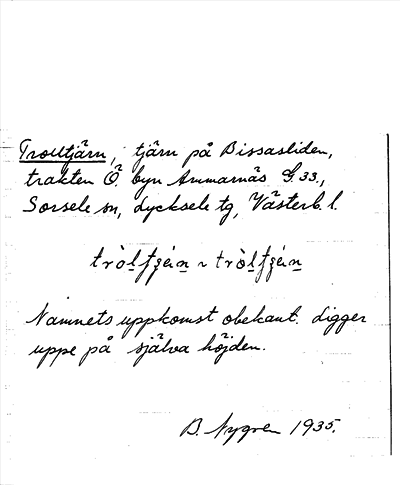 Trolltjärn, tjärn på Bissasliden,
trakten Ö. byn Ammarnäs G. 33.,
Sorsele sn, Lycksele tg, Västerb. l.
Namnets uppkomst obekant. Ligger
uppe på själva höjden.
B. Nygren 1935.